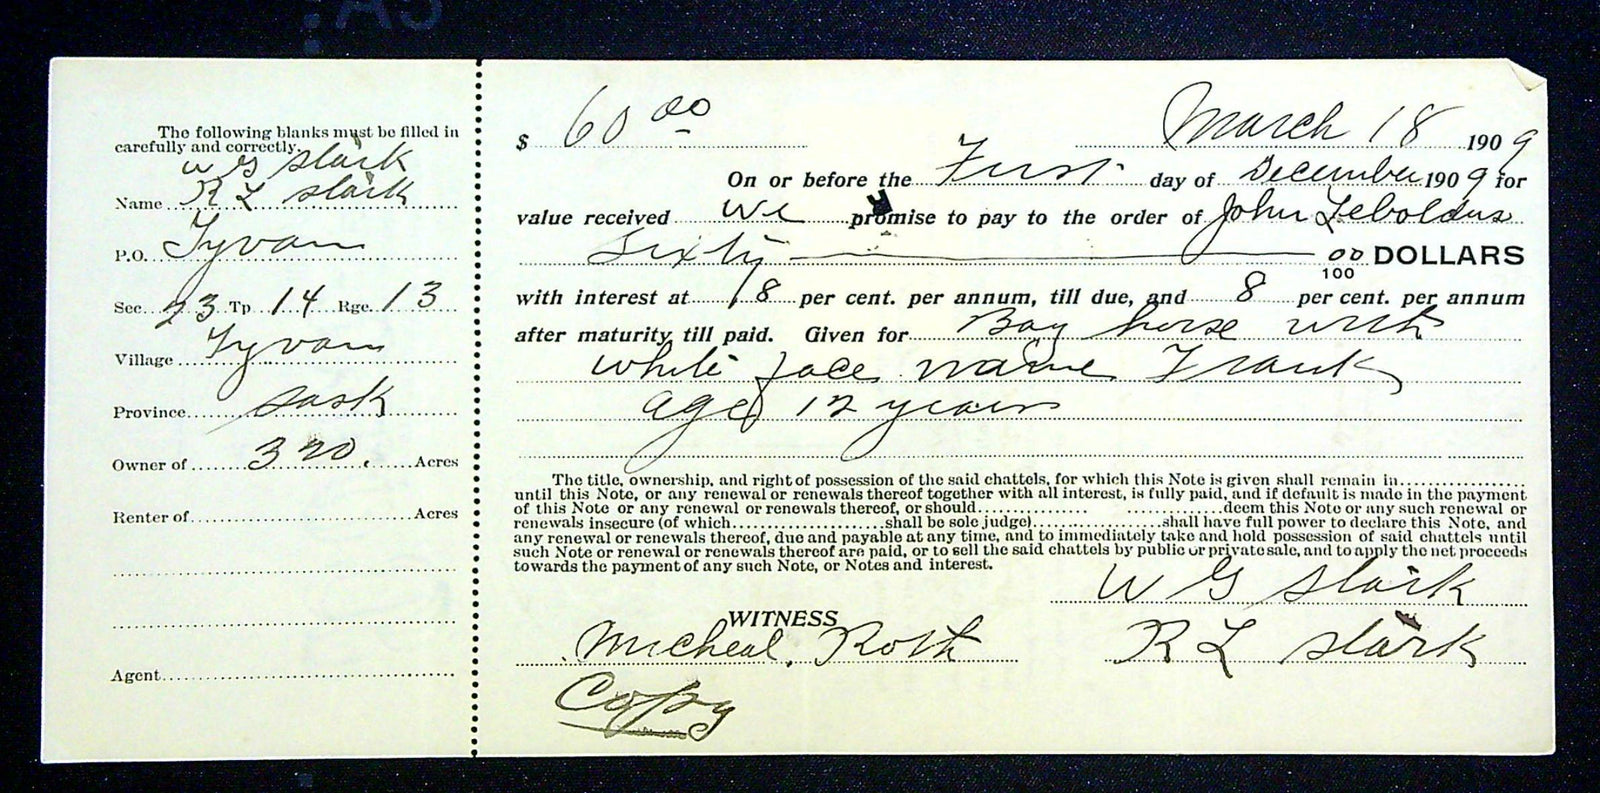 The following blanks must be filled in
carefully and correctly.
W G Stark
Name R L Stark
P.O. Tyvan
Sec. 23 Tp 14 Rge. 13
Village Tyvan
Province Sask
Owner of 320. Acres
Renter of Acres
Agent
$ 60 00 March 18 1909
On or before the First day of December 1909 for
value received we promise to pay to the order of John Leboldus
Sixty 00/100 DOLLARS
with interest at 8 per cent. per annum, till due, and 8 per cent. per annum
after maturity till paid. Given for Bay horse with
white face name Frank
age 12 years
The title, ownership, and right of possession of the said chattels, for which this Note is given shall remain in
until this Note, or any renewal or renewals thereof together with all interest, is fully paid, and if default is made in the payment
of this Note or any renewal or renewals thereof, or should deem this Note or any such renewal or
renewals insecure (of which shall be sole judge) shall have full power to declare this Note, and
any renewal or renewals thereof, due and payable at any time, and to immediately take and hold possession of said chattels until
such Note or renewal or renewals thereof are paid, or to sell the said chattels by public or private sale, and to apply the net proceeds
towards the payment of any such Note, or Notes and interest.
W G Stark
WITNESS
Micheal. Roth R L Stark
Copy